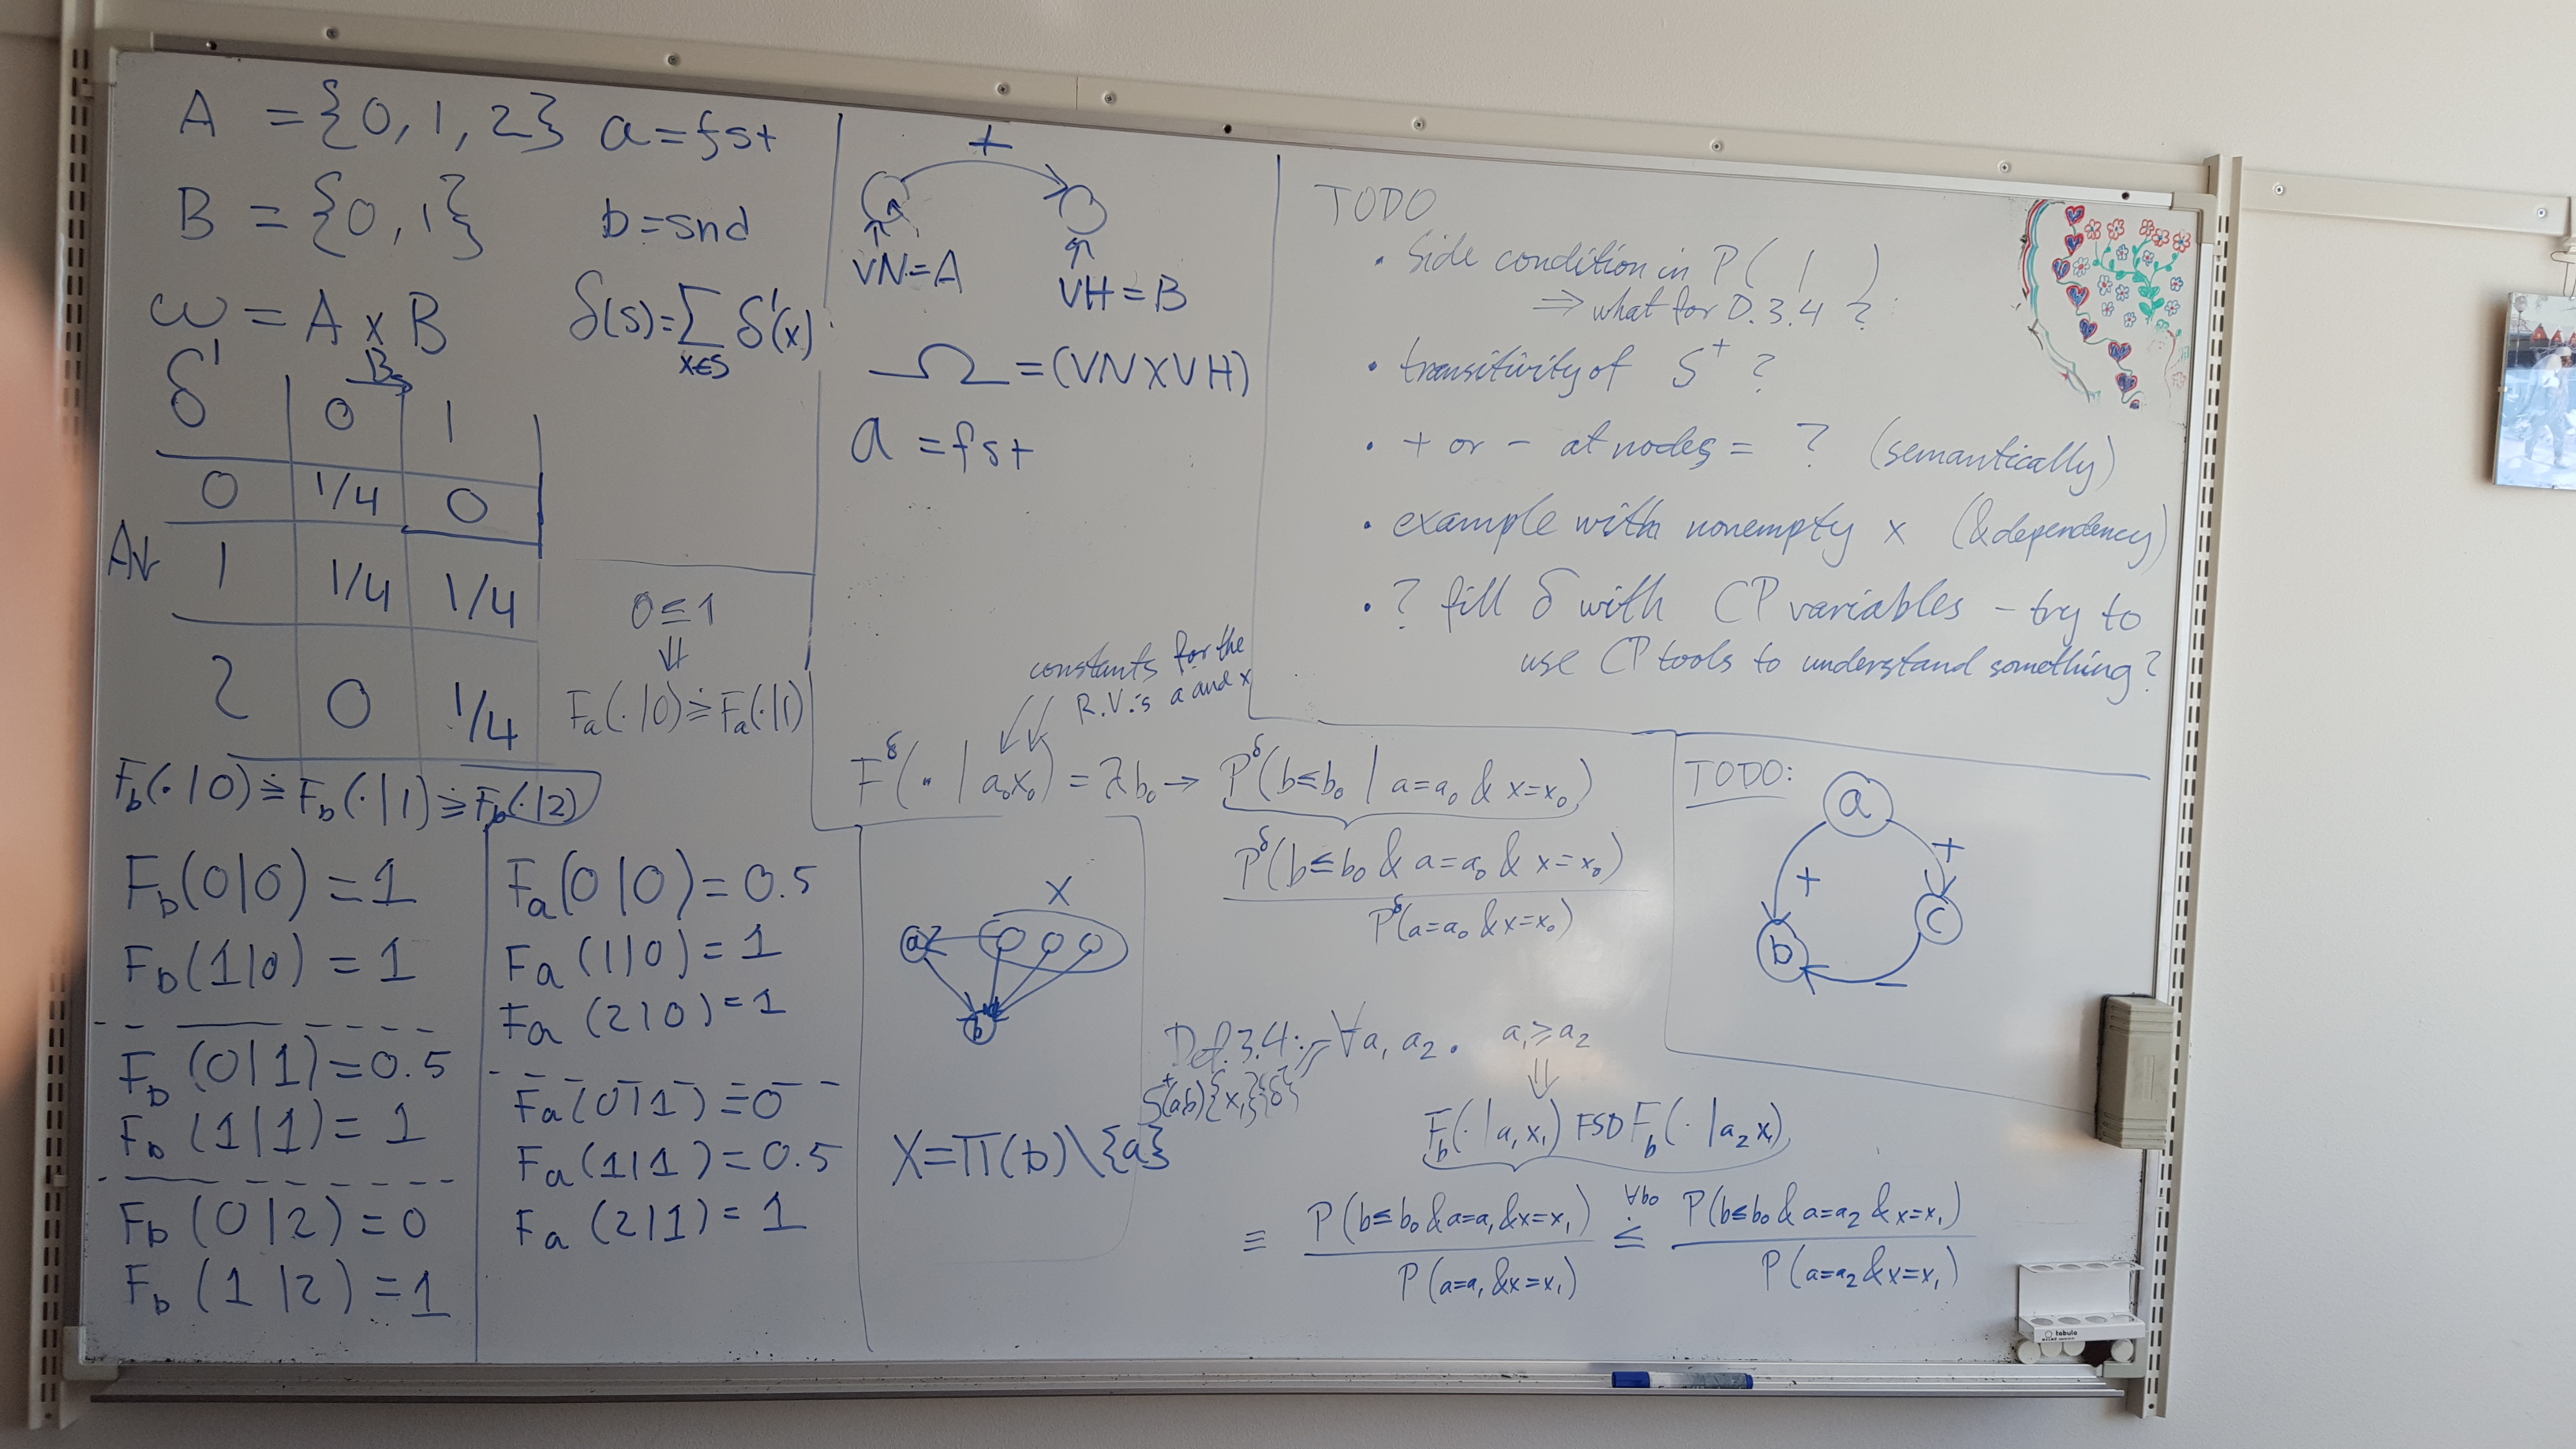 A = {0, 1, 2} a = fst
B = {0, 1} b = snd
ω = A x B δ(s) = ∑ δ'(x)
x∈S
B→
δ' 0 1
0 1/4 0
A↓ 1 1/4 1/4
2 0 1/4
0 ≤ 1
⇓
Fa(·|0) ≥ Fa(·|1)
Fb(·|0) ≥ Fb(·|1) ≥ Fb(·|2)
Fb(0|0) = 1
Fb(1|0) = 1
Fb(0|1) = 0.5
Fb(1|1) = 1
Fb(0|2) = 0
Fb(1|2) = 1
Fa(0|0) = 0.5
Fa(1|0) = 1
Fa(2|0) = 1
Fa(0|1) = 0
Fa(1|1) = 0.5
Fa(2|1) = 1
+
VN = A
VH = B
Ω = (VN x VH)
a = fst
constants for the
R.V.:s a and x
F^δ(· | a₀x₀) = λb₀ → P^δ(b ≤ b₀ | a=a₀ & x=x₀)
P^δ(b ≤ b₀ & a=a₀ & x=x₀)
P^δ(a=a₀ & x=x₀)
X
a
b
X = π(b) \ {a}
Def. 3.4: ∀a₁ a₂. a₁ ≥ a₂
S⁺(ab){x₁}{δ}
⇓
Fb(·|a₁x₁) FSD Fb(·|a₂x₁)
≡ P(b ≤ b₀ & a=a₁ & x=x₁) ∀b₀ ≤ P(b ≤ b₀ & a=a₂ & x=x₁)
P(a=a₁ & x=x₁) P(a=a₂ & x=x₁)
TODO
· Side condition in P( | )
⇒ what for D.3.4 ?
· transitivity of S⁺ ?
· + or - at nodes = ? (semantically)
· example with nonempty x (& dependency)
· ? fill δ with CP variables - try to
use CP tools to understand something?
TODO:
a
+ +
b c
-
tabula